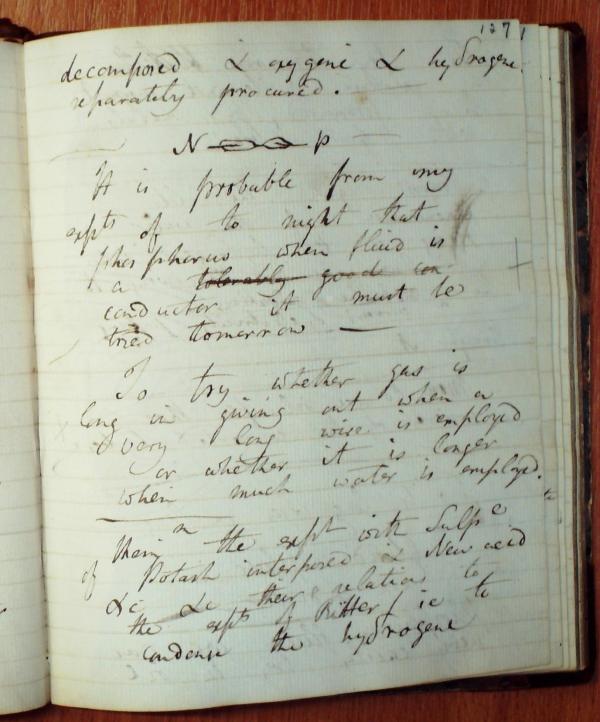 127
decomposed & oxygene & hydrogene
separately procured.
N P
It is probable from my
expts of to night that
phospherus when fluid is
a tolerably good con
conductor it must be
tried tomorrow —
To try whether gas is
long in giving out when a
very long wire is employed
or whether it is longer
when much water is employed.
the expt with Sulp e
of Potash interposed & New acid
&c &c their relations to
the expts of Ritter / ie to
condense the hydrogene